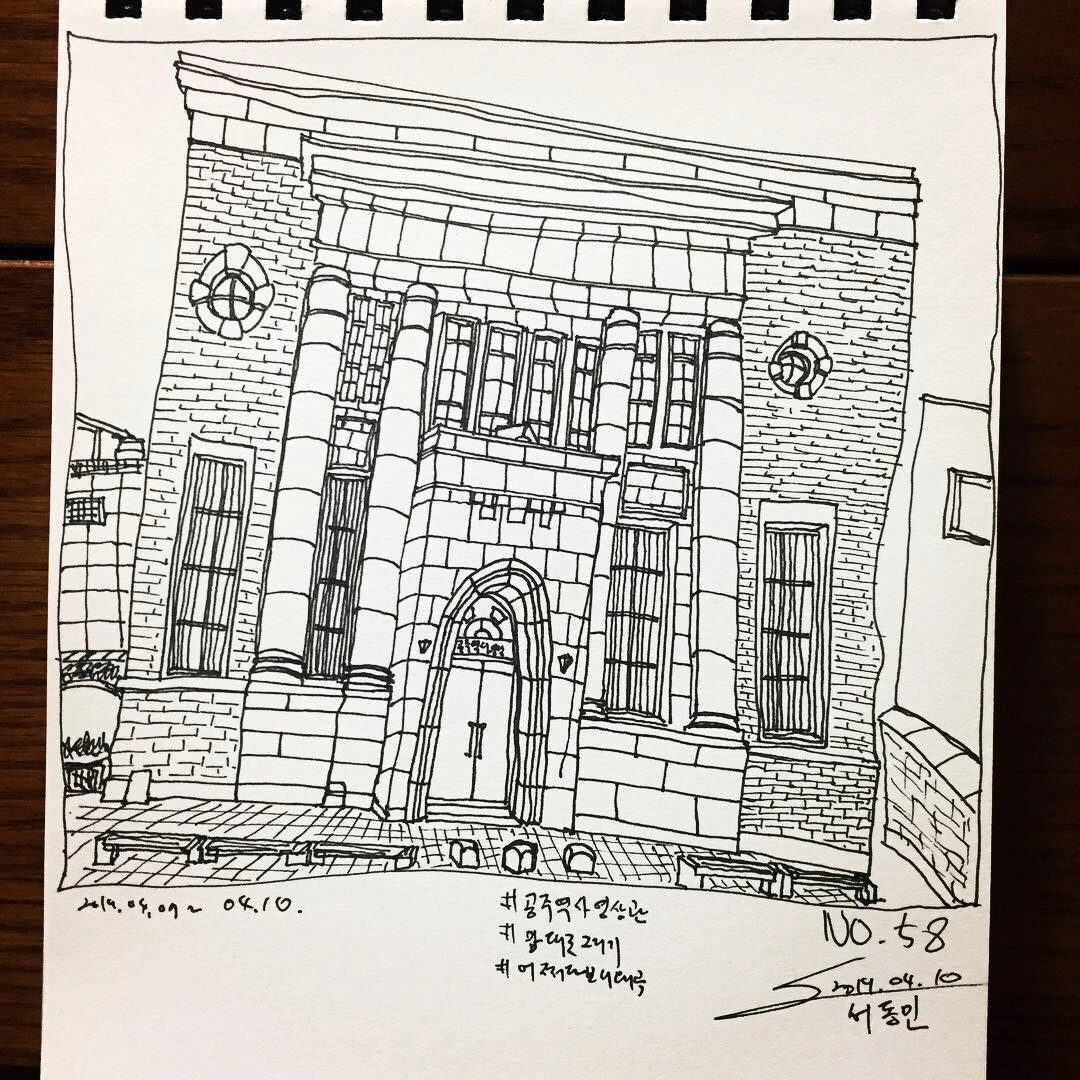 2019.04.09 ~ 04.10.
#공주역사영상관
#맘대로그리기
#어쩌다보니
NO.58
2019.04.10
서동민